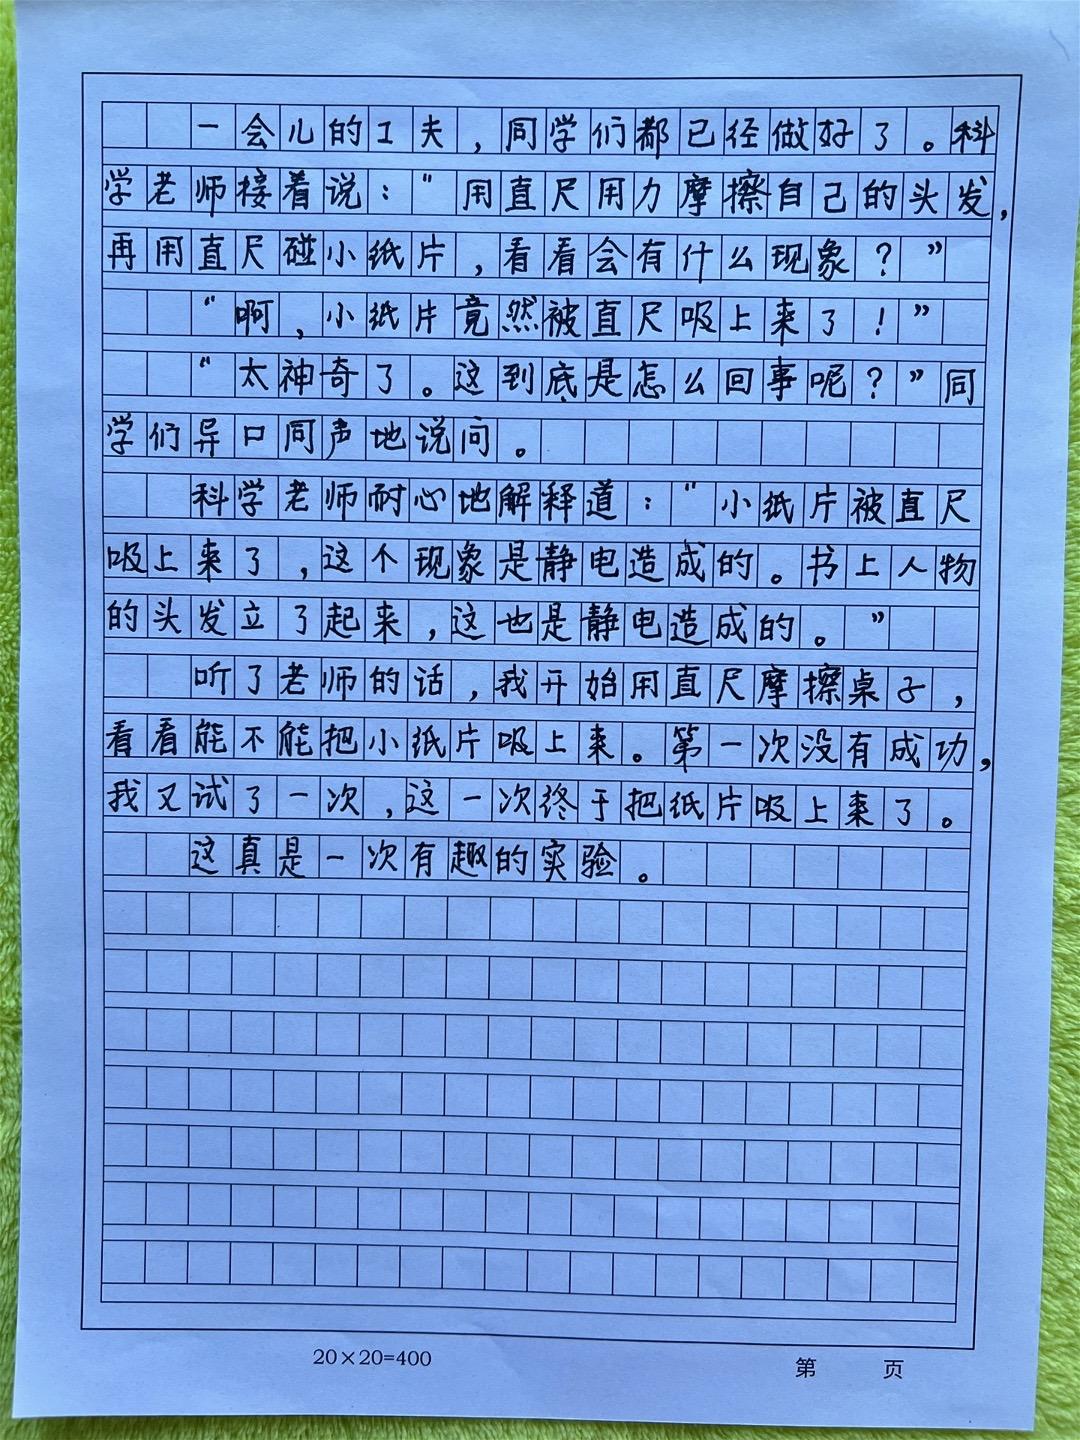 一会儿的工夫，同学们都已经做好了。科
学老师接着说：“用直尺用力摩擦自己的头发，
再用直尺碰小纸片，看看会有什么现象？”
“啊，小纸片竟然被直尺吸上来了！”
“太神奇了。这到底是怎么回事呢？”同
学们异口同声地说问。
科学老师耐心地解释道：“小纸片被直尺
吸上来了，这个现象是静电造成的。书上人物
的头发立了起来，这也是静电造成的。”
听了老师的话，我开始用直尺摩擦桌子，
看看能不能把小纸片吸上来。第一次没有成功，
我又试了一次，这一次终于把纸片吸上来了。
这真是一次有趣的实验。
20×20=400
第 页